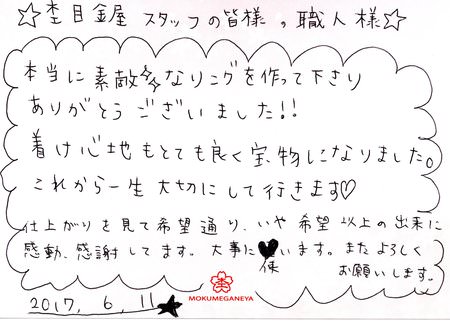 ☆杢目金屋 スタッフの皆様 。職人様☆
本当に素敵なリングを作って下さり
ありがとうございました!!
着け心地もとても良く宝物になりました。
これから一生大切にして行きます♡
仕上がりを見て希望通り、いや希望以上の出来に
感動、感謝してます。大事に使います。またよろしく
お願いします。
MOKUMEGANEYA
2017. 6. 11 ★